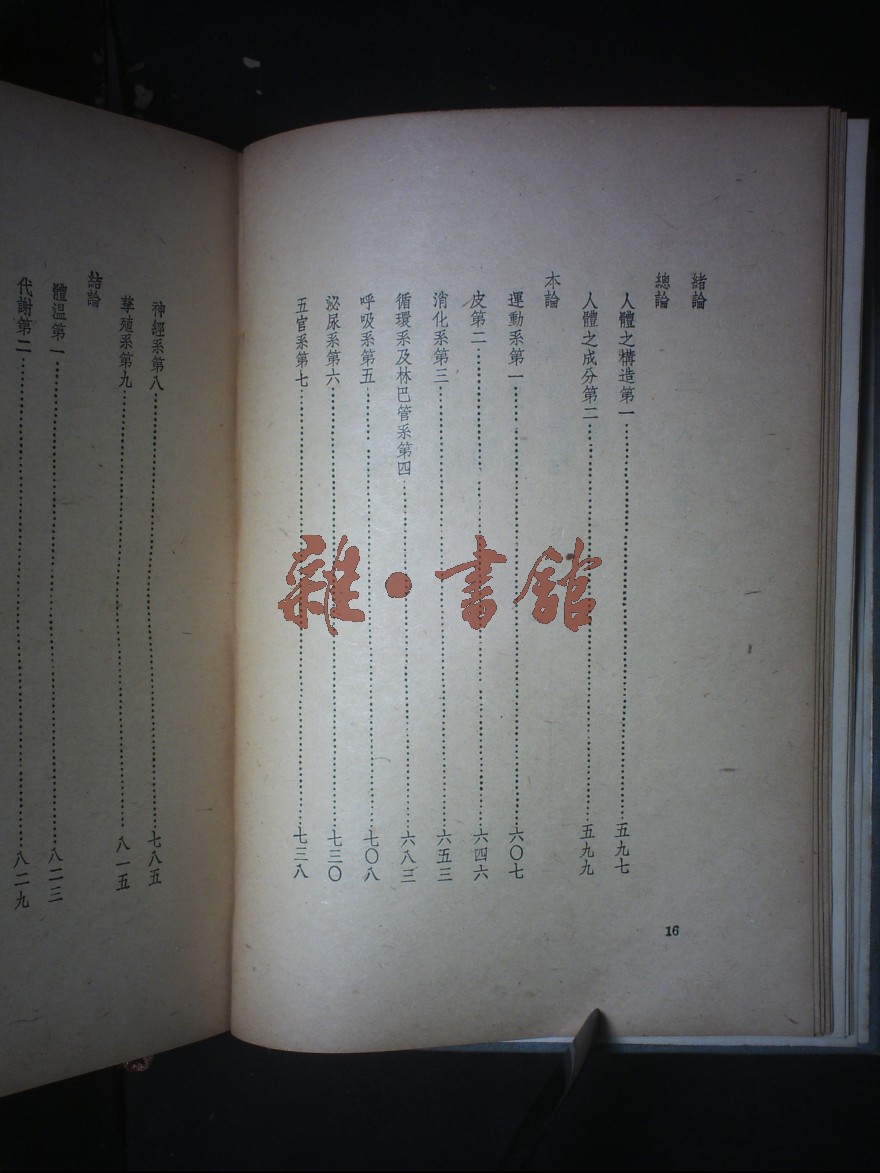 緒論
總論
人體之構造第一……五九七
人體之成分第二……五九九
本論
運動系第一……六〇七
皮第二……六四六
消化系第三……六五三
循環系及林巴管系第四……六八三
呼吸系第五……七〇八
泌尿系第六……七三〇
五官系第七……七三八
16
神經系第八……七八五
孳殖系第九……八一五
結論
體溫第一……八二三
代謝第二……八二九
雜·書館